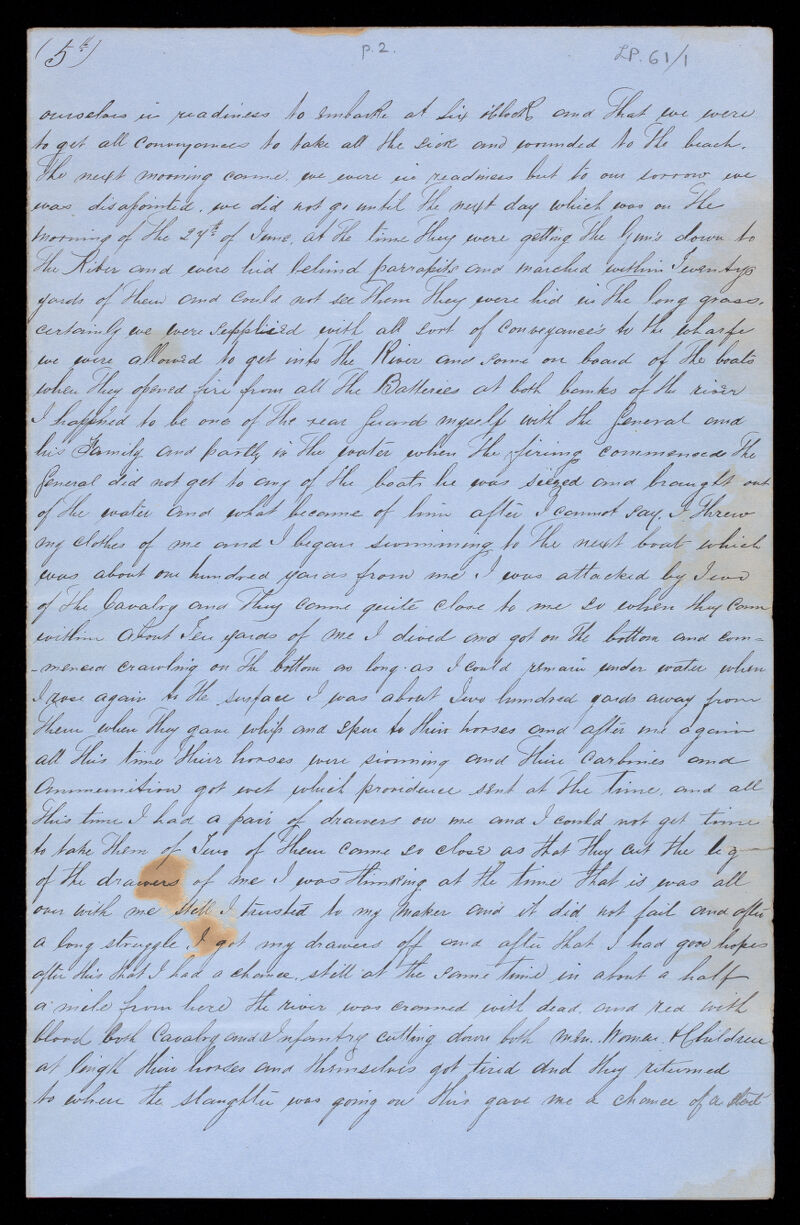 (5th) p. 2. LP. 61/1
ourselves in readiness to embarke at Six oClock and that we were
to get all conveyances to take all the sick and wounded to the beach.
The next morning came. we were in readiness but to our sorrow we
was disapointed. we did not go until the next day which was on the
morning of the 27th of June. at the time they were getting the Gun's down to
the River and were hid behind parrapits and marched within Twenty
yards of them and could not see them they were hid in the long grass.
certainly we were supplied with all sort of conveyance's to the wharfe
we were allowed to get into the River and some on board of the boats
when they opened fire from all the Batteries at both banks of the river
I happned to be one of the rear Guard myself with the General and
his Family and partly in the water when the firing commenced The
General did not get to any of the boats. he was siezed and brought out
of the water and what became of him after I cannot say. I threw
my clothes of me and I began swimming to the next boat which
was about one hundred yards from me I was attacked by Two
of the Cavalry and They come quite close to me so when they came
within about Ten yards of me I dived and got on the bottom and com=
=menced crawling on the bottom as long as I could remain under water when
I rose again to the surface I was about Two hundred yards away from
them when they gave whip and spur to their horses and after me again
all this time their horses were swimming and their carbines and
ammunition got wet which providence sent at the time. and all
this time I had a pair of drawers on me and I could not get time
to take them of Two of them came so close as that they cut the leg
of the drawers of me I was thinking at the time that is was all
over with me still I trusted to my Maker and it did not fail and after
a long struggle I got my drawers off and after that I had good hopes
after this that I had a chance. still at the same time in about a half
a mile from here the river was crammed with dead. and red with
blood both Cavalry and Infantry cutting down both men. Women & Children
at lingth their horses and themselves got tired and they returned
to where the slaughter was going on this gave me a chance of a